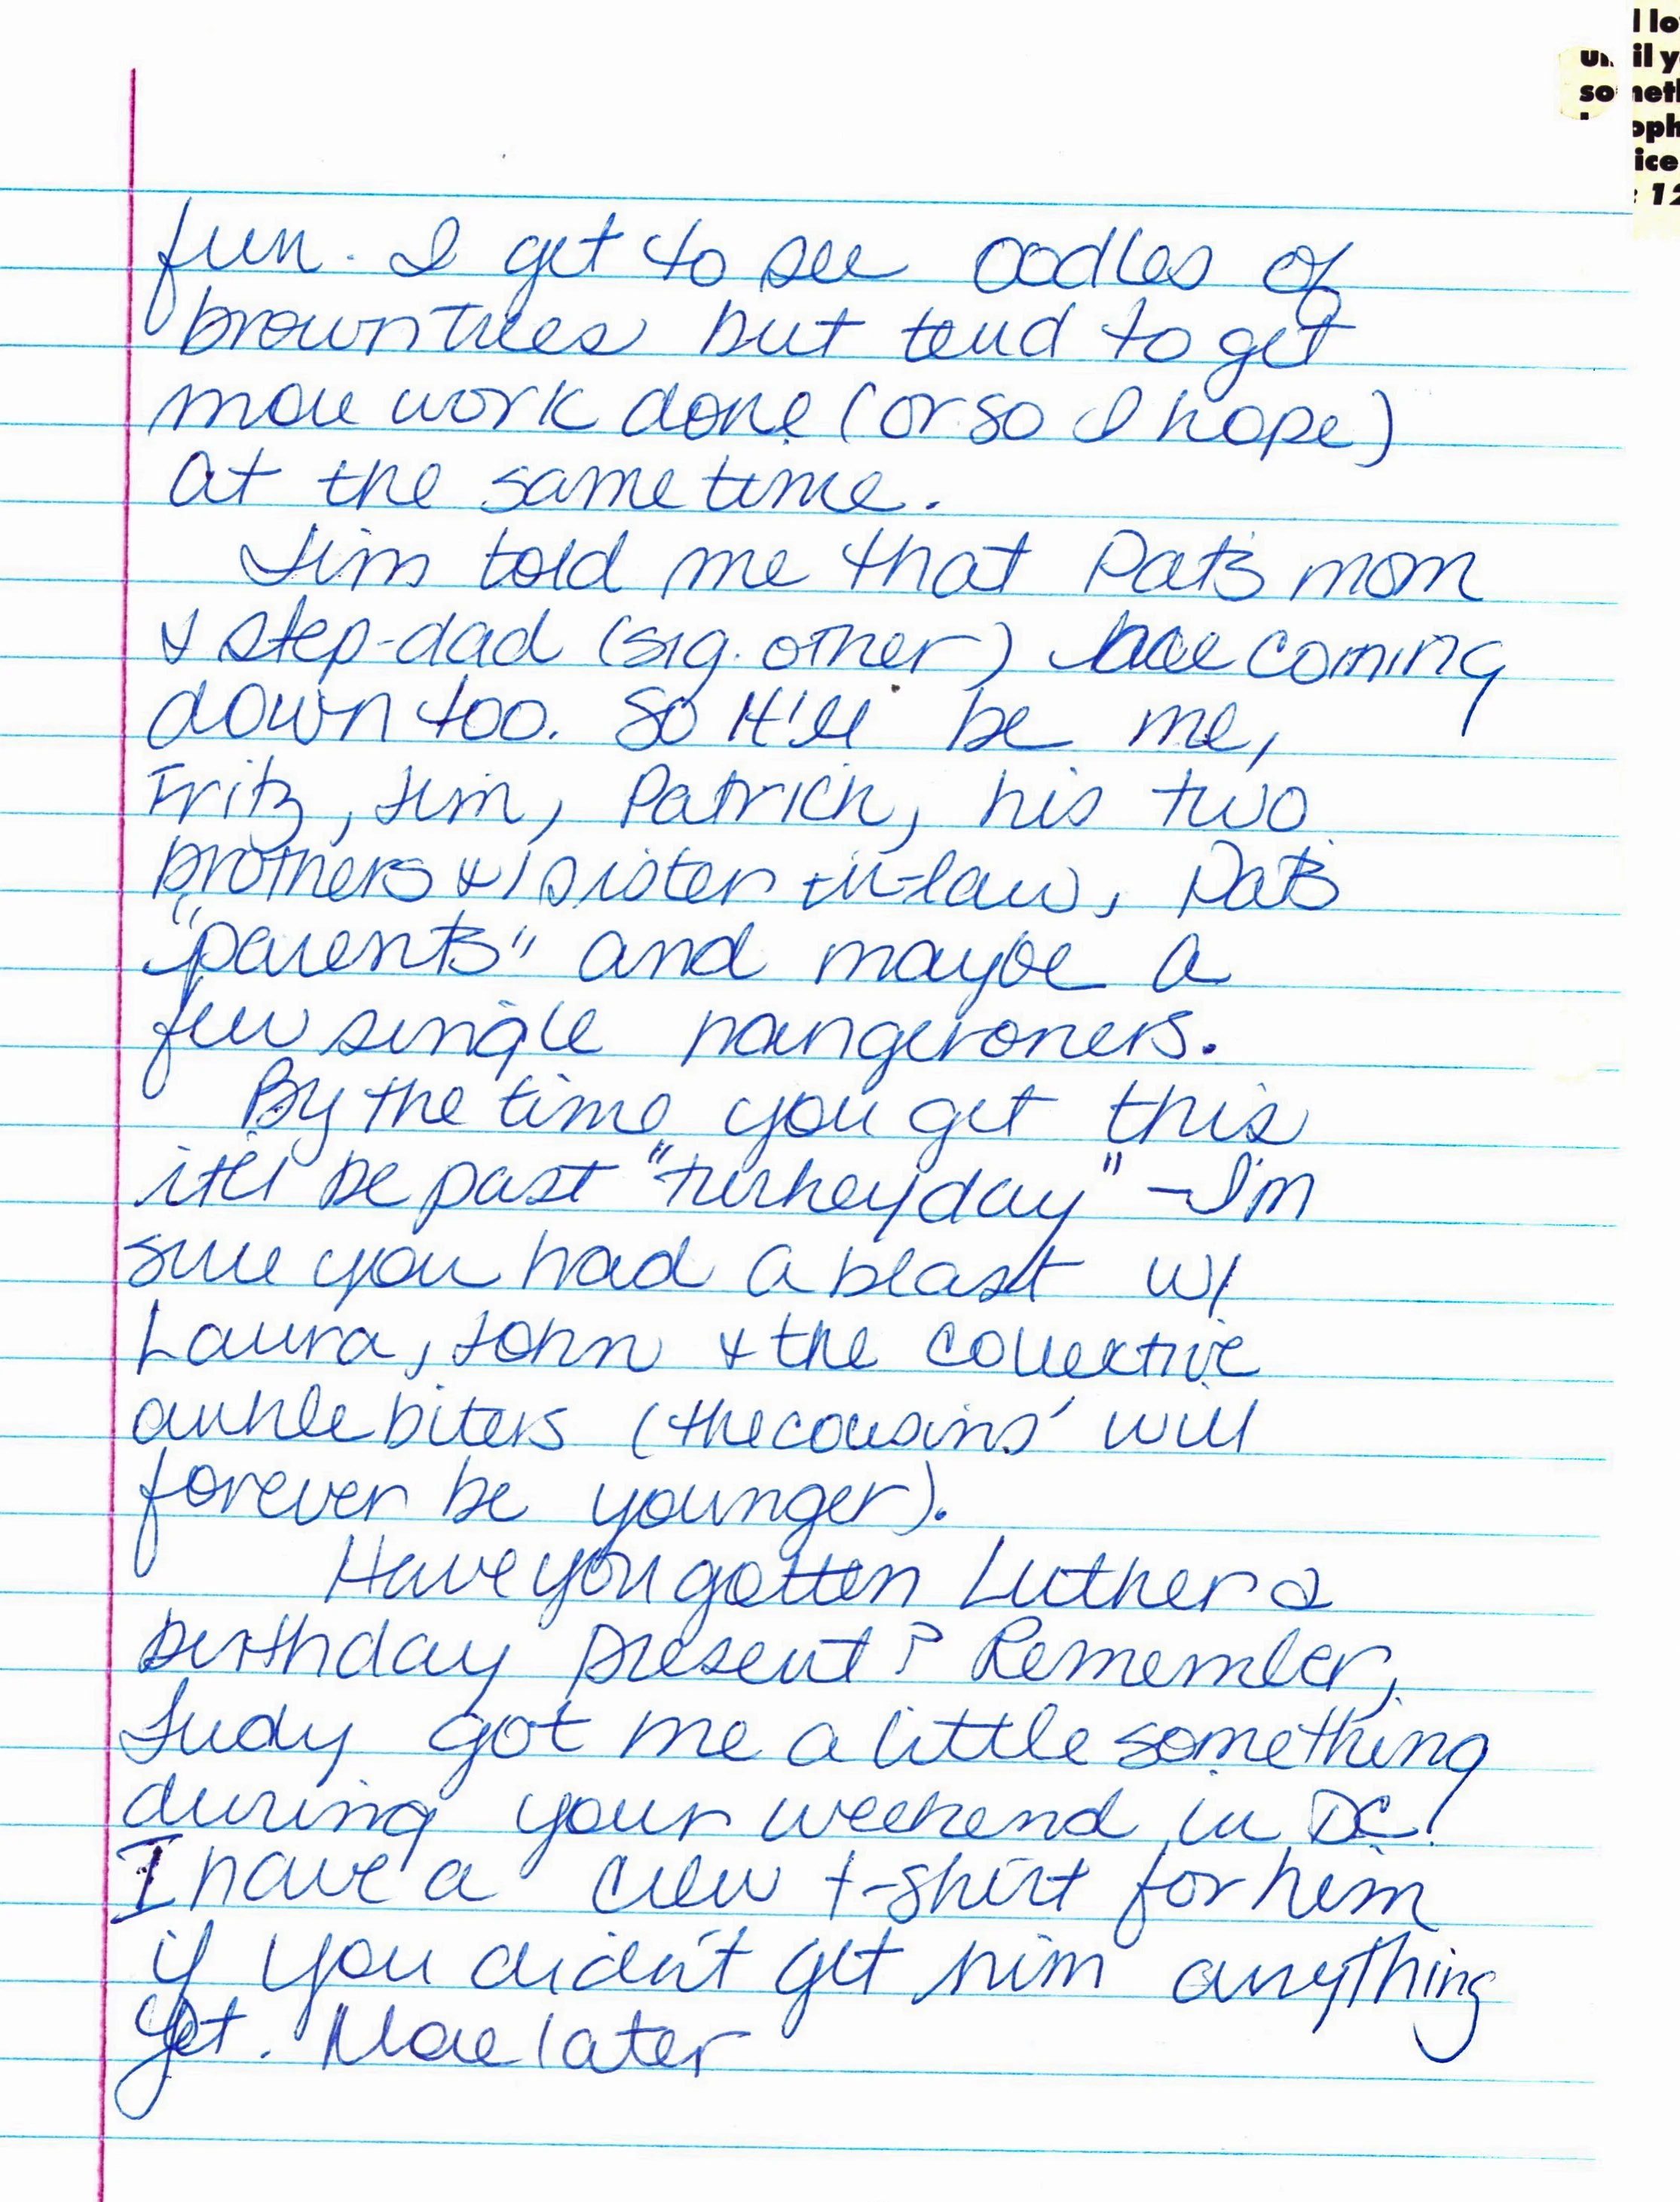 l lo
un il y
so neth
oph
ice
: 12
fun. I get to see oodles of
brown trees but tend to get
more work done (or so I hope)
at the same time.
Jim told me that Pat's mom
& step-dad (sig. other) are coming
down too. So it'll be me,
Fritz, Jim, Patrick, his two
brothers & 1 sister-in-law, Pat's
"parents" and maybe a
few single hangeroners.
By the time you get this
it'll be past "turkey day" - I'm
sure you had a blast w/
Laura, John & the collective
ankle biters (the cousins' will
forever be younger).
Have you gotten Luther a
birthday present? Remember,
Judy got me a little something
during your weekend in DC!
I have a crew t-shirt for him
if you didn't get him anything
yet. More later